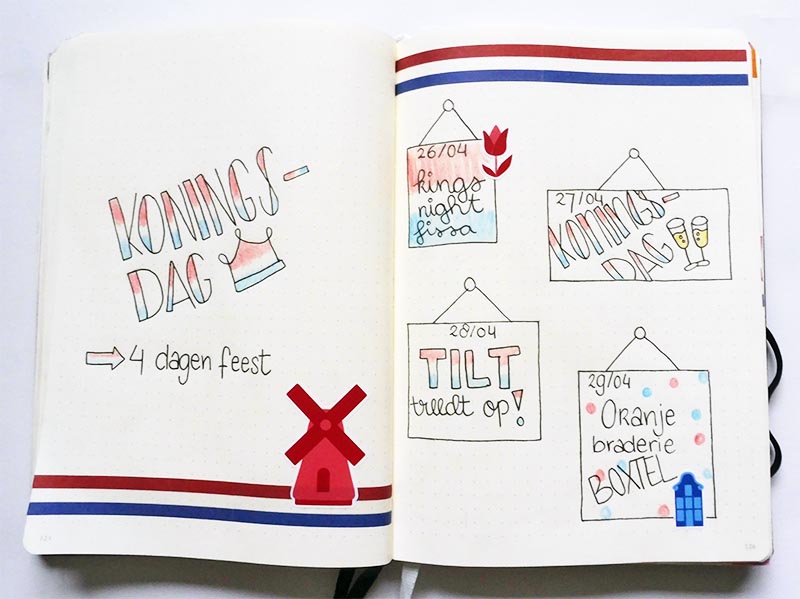 KONINGS-
DAG
4 dagen feest
26/04
kings
night
fissa
27/04
KONINGS-
DAG
28/04
TILT
treedt op!
29/04
Oranje
braderie
BOXTEL